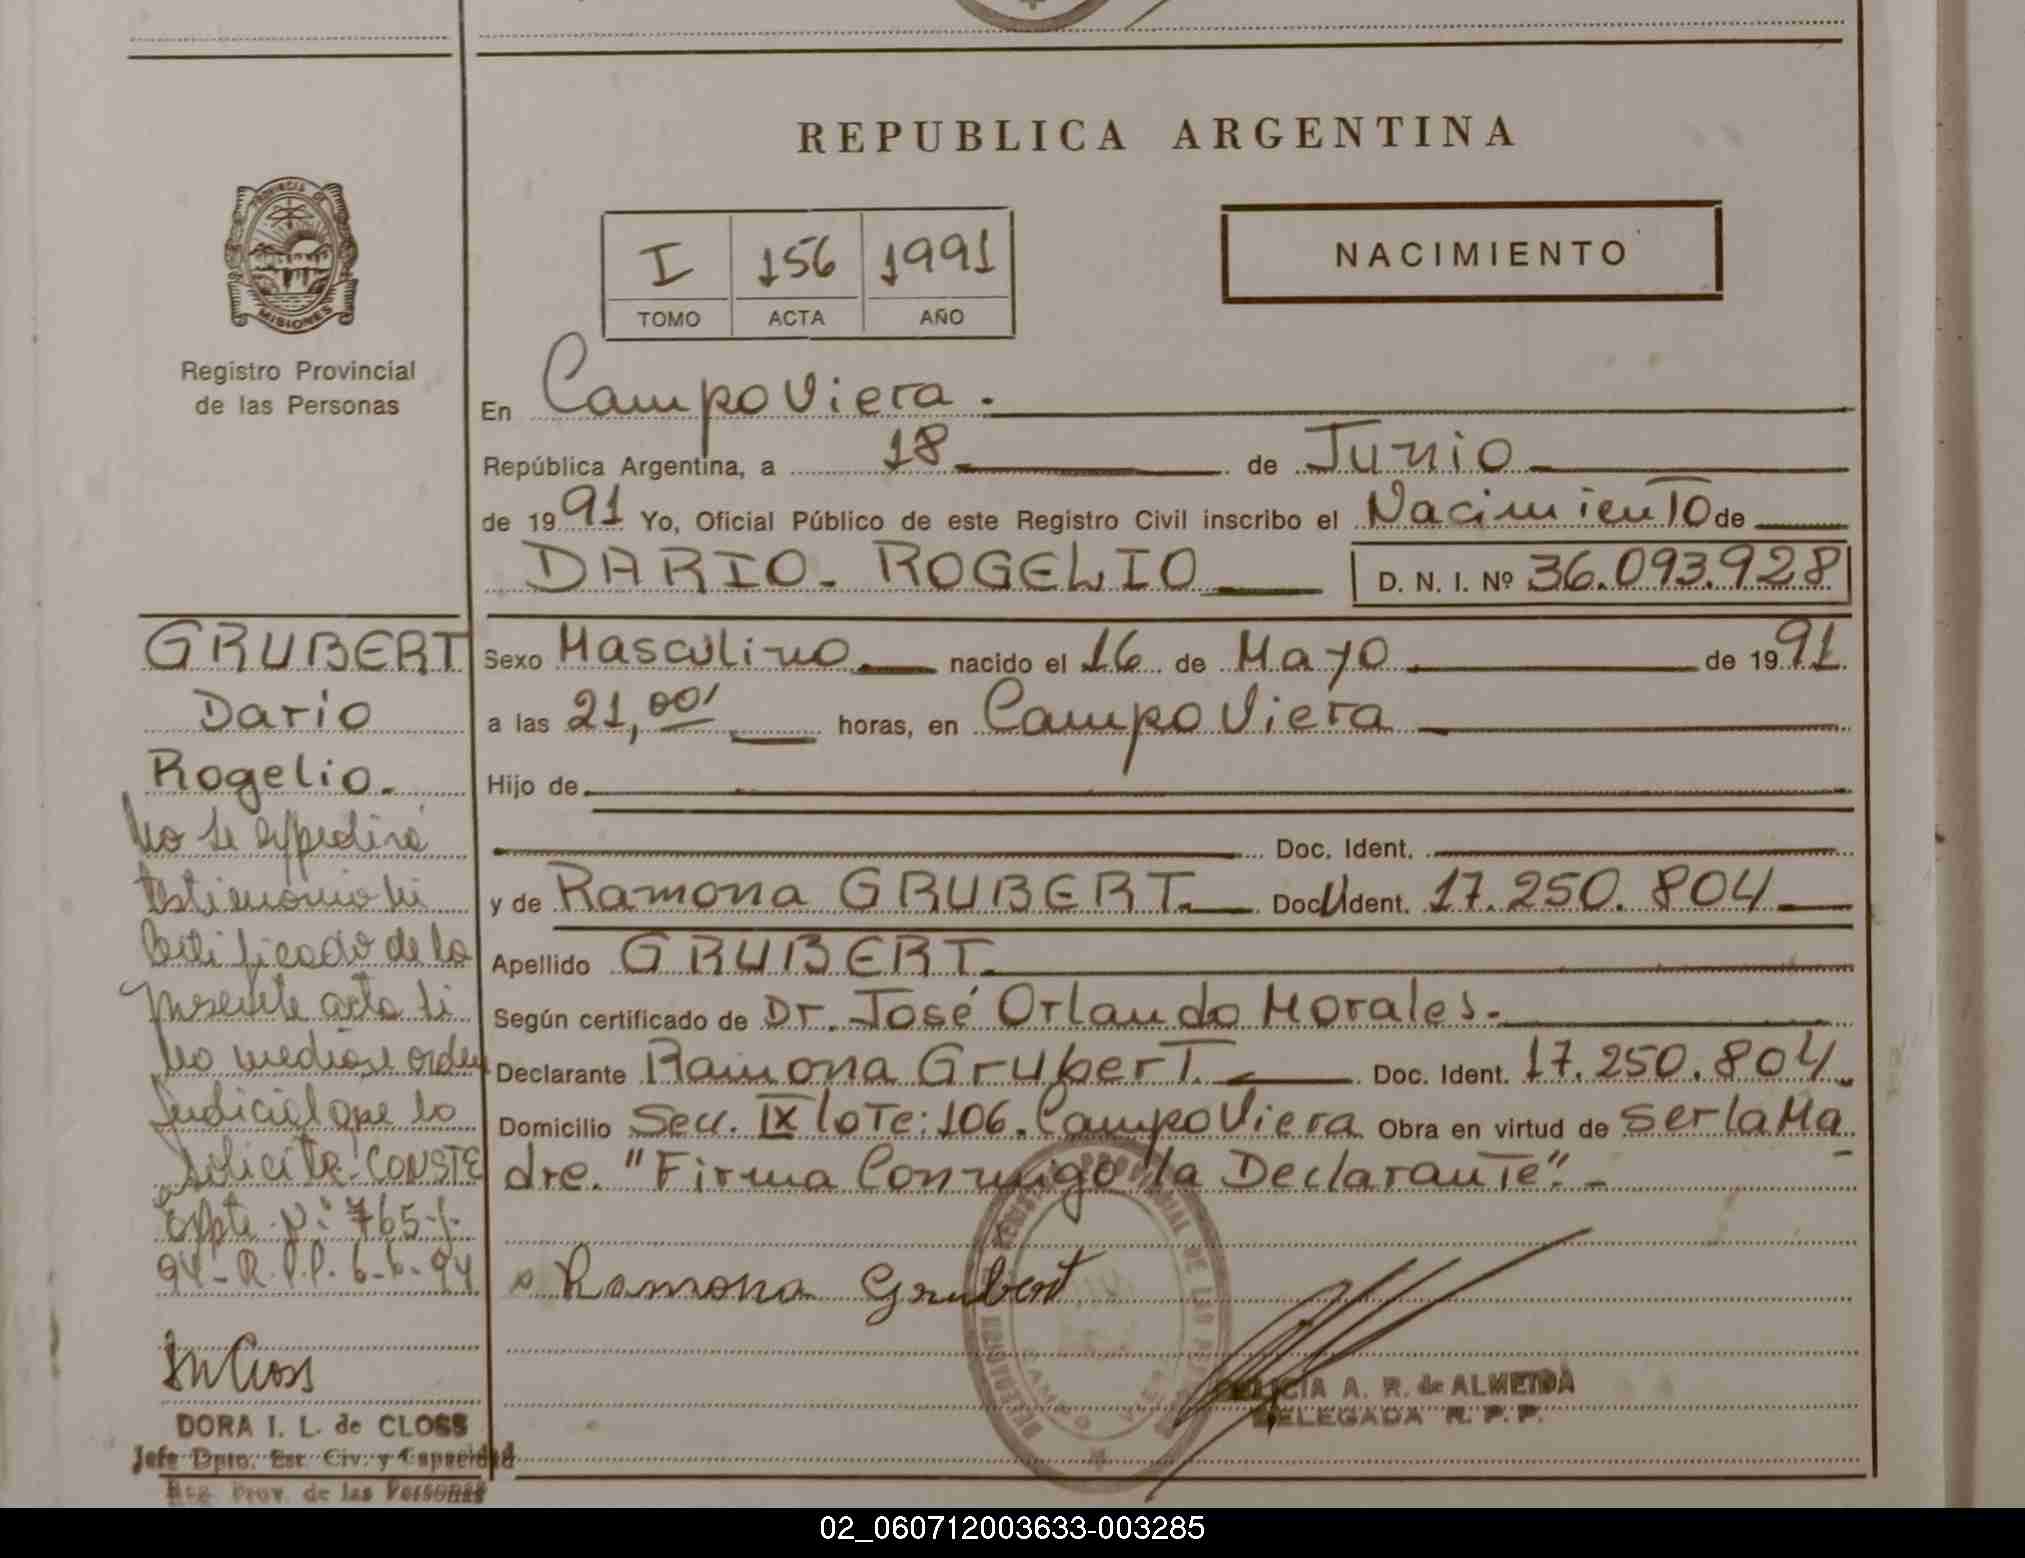 REPUBLICA ARGENTINA
PROVINCIA DE
MISIONES
Registro Provincial
de las Personas
I 156 1991
TOMO ACTA AÑO
NACIMIENTO
En Campo Viera.
República Argentina, a 18 de Junio
de 1991 Yo, Oficial Público de este Registro Civil inscribo el Nacimiento de
DARIO ROGELIO D. N. I. Nº 36.093.928
Sexo Masculino nacido el 16 de Mayo de 1991.
a las 21,00' horas, en Campo Viera
Hijo de
Doc. Ident.
y de Ramona GRUBERT. Doc. Ident. 17.250.804
Apellido GRUBERT.
Según certificado de Dr. José Orlando Morales.
Declarante Ramona Grubert. Doc. Ident. 17.250.804
Domicilio Secc. IX lote: 106. Campo Viera Obra en virtud de ser la Ma
dre. "Firma Conmigo la Declarante".-
Ramona Grubert
A. R. de ALMEIDA
DELEGADA R. P. P.
GRUBERT
Dario
Rogelio.
No se expedirá
testimonio ni
Certificado de la
presente acta si
no mediase orden
Judicial que lo
solicite. CONSTE
Expte. Nº 765-
94- R.P.P. 6-6-94
DORA I. L. de CLOSS
Jefe Dpto. Est. Civ. y Capacidad
Reg. Prov. de las Personas
02_060712003633-003285